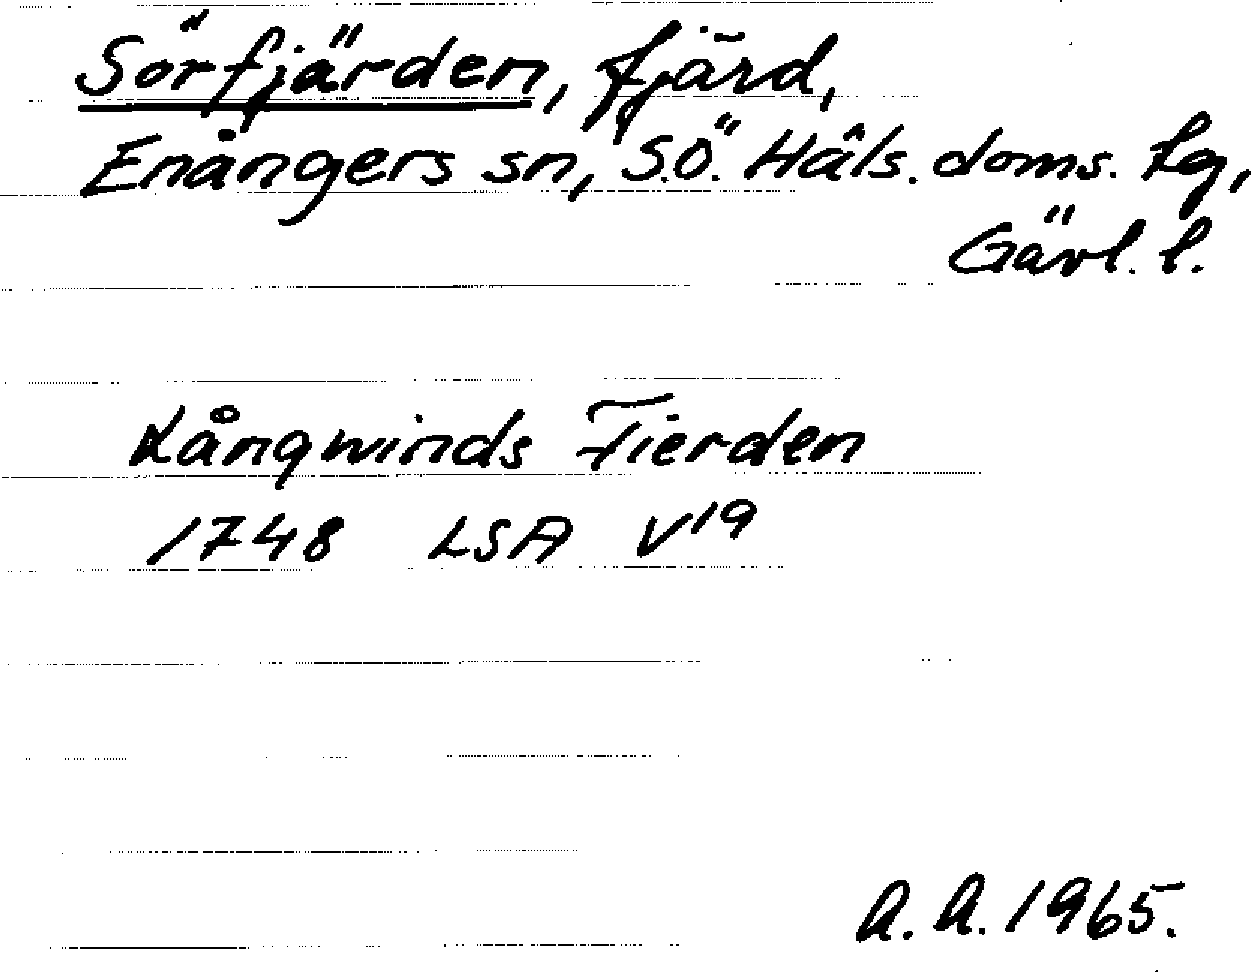 Sörfjärden, fjärd,
Enångers sn, S.Ö. Häls. doms. lg,
Gävl. l.
Långwinds Fierden
1748 LSA V19
A. A. 1965.